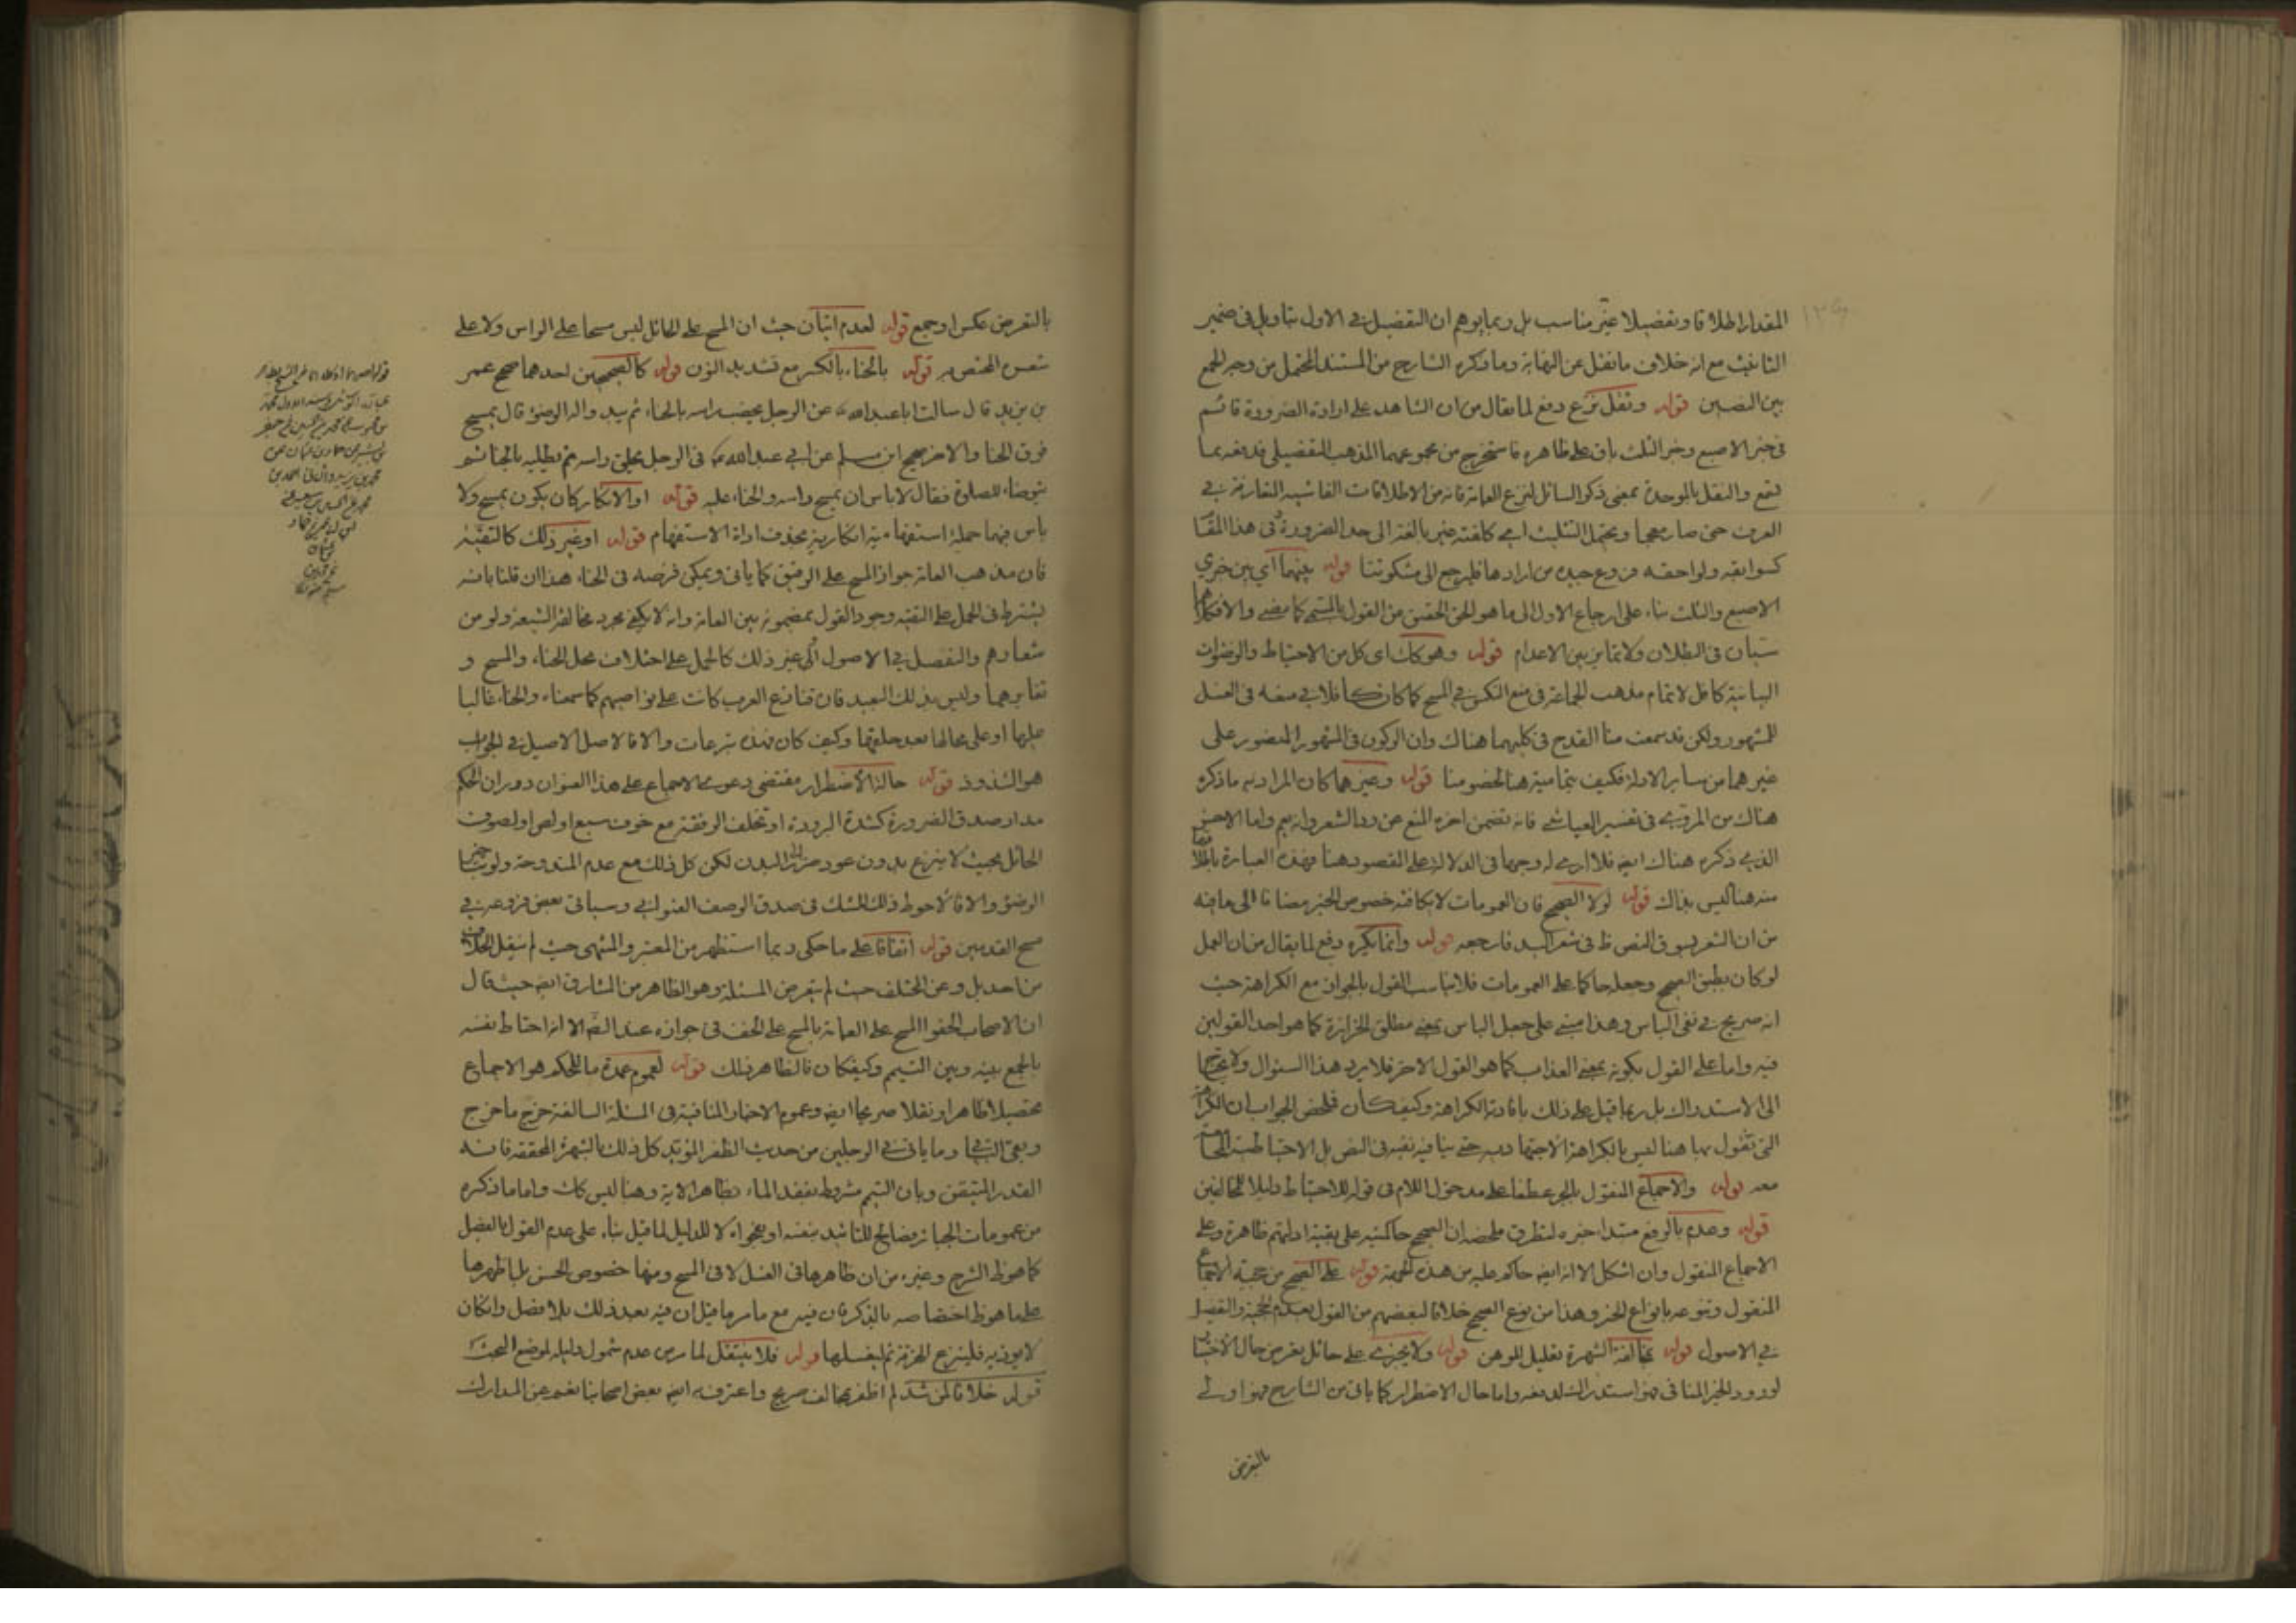 المقدار اطلاقا وتفضيلا غير مناسب بل ربما يوهم ان التفضيل في الاول بتاويل في ضمير
الثانيث مع انه خلاف ما نقل عن النهاية وما ذكره الشارح من المستند المحتمل من وجه الجمع
بين النصين قوله ونقل نزع دفع لما يقال من ان الشاهد على ارادة الضرورة قائم
في خبر الاصبع وخبر الثلث باق على ظاهره فاستخرج من مجموعهما المذهب التفصيلي فدفعه بما
لنقع والنقل بالموحدة بمعنى ذكر السائل لنزع العمامة فانه من الاطلاقات الفاشية التعارف في
العرف حتى صار معجما ويحتمل التثليث اي كلفته غير بالغة الى حد الضرورة في هذا المقا
كسوابقه ولواحقه فروع جيده من ارادها فليرجع الى مشكوتنا قوله بينهما اي بين خبري
الاصبع والثلث بناء على ارجاع الاول الى ما هو الحق الحقيق من القول بالمسمى كما مضى والا فكلاهما
سيان في البطلان ولا تمايز بين الاعدام قوله وهو كك اى كل من الاحتياط والوضوات
البيانية كافل لاتمام مذهب الجماعة في منع النكس في المسح كما كان كافلا في منعه في الغسل
المشهور ولكن قد سمعت منا القدح في كليهما هناك وان الركون في المشهور المنصور على
غيرهما من ساير الادلة فكيف بتمامية هنا لخصومنا قوله وغيرهما كان المراد به ما ذكره
هناك من المروي في تفسير العياشي فانه تضمن اخره المنع عن رد الشعر وانهم واما الاخر
الذي ذكره هناك ايضا فلا ارى له وجها في الدلالة على المقصود هنا فهذه العبارة باطلاقها
منه هنا ليس بذاك قوله لولا الصحيح فان العمومات لا تكافئه خصوص الخبر مضافا الى ما فيه
من ان الشعر بسوق النص ظ في شعر اليد فارجعه قوله وانما يكره دفع لما يقال من ان العمل
لو كان بطبق الصحيح وجعله حاكما على العمومات فلا يناسب القول بالجواز مع الكراهة حيث
انه صريح في نفي الباس وهذا مبني على جعل الباس بمعنى مطلق الحزازة كما هو احد القولين
فيه واما على القول بكونه بمعنى العذاب كما هو القول الاخر فلا يرد هذا السئوال ولا يحتاج
الى الاستدراك بل ربما قيل على ذلك بافادته الكراهة وكيف كان فملخص الجواب ان الكراهة
التي نقول بها هنا ليس بالكراهة الاجتهادية حتى ينافيه نفيه في النص بل الاحتياطية
معه قوله والاجماع المنقول بالجر عطفا على مدخول اللام في قوله للاحتياط دليلا للمخالفين
قوله وعدم بالرفع مبتدا خبره لتطرق ملخصه ان الصحيح حاكميته على بقية ادلتهم ظاهرة وعلى
الاجماع المنقول وان اشكل الا انه ايضا حاكم عليه من هذه الجهة قوله على الصحيح من حجية الاجماع
المنقول وتنوعه بانواع الخبر وهذا من نوع الصحيح خلافا لبعضهم من القول بعدم الحجية والتفصيل
في الاصول قوله مخالفة الشهرة تعليل للوهن قوله ولا يجزي على حائل بغرض حال الاختيار
لورود الخبر المنافي فهو استدراك لدفعه واما حال الاضطرار كما ياتي من الشارح فهو اولى
بالتعرض
بالتعرض عكس او جمع قوله لعدم اتيان حيث ان المسح على الحائل ليس مسحا على الراس ولا على
شعره المختص به قوله بالحناء بالكسر مع تشديد النون قوله كالصحيحين احدهما صحيح عمر
بن يزيد قال سالت ابا عبد الله ع عن الرجل يخضب راسه بالحناء ثم يبد واله الوضوء قال يمسح
فوق الحنا والاخر صحيح ابن مسلم عن ابي عبد الله ع في الرجل يحلق راسه ثم يطليه بالحنا ثم
يتوضاء للصلوة فقال لا باس ان يمسح راسه والحناء عليه قوله او الانكار كان يكون يمسح ولا
باس فيهما جملة استفهامية انكارية بحذف اداة الاستفهام قوله او غير ذلك كالتقية
فان مذهب العامة جواز المسح على الرقيق كما ياتي ويمكن فرضه في الحناء هذا ان قلنا بانه
يشترط في الحمل على التقية وجود القول بمضمونه بين العامة وانه لا يكفي مجرد مخالفة الشيعة ولو من
شعارهم والتفصيل في الاصول الى غير ذلك كالحمل على اختلاف محل الحناء والمسح و
تغايرهما وليس بذلك البعيد فان قنازع العرب كانت على نواصيهم كما سمعناه والحناء غالبا
عليها او على محالها بعد حلقها وكيف كان فهذه تبرعات والا فالاصل الاصيل في الجواب
هو الشذوذ قوله حالة الاضطرار مقتضى دعوى الاجماع على هذا العنوان دوران الحكم
مدار صدق الضرورة كشدة البرودة او تخلف الرفقة مع خوف سبع او لص او لصوق
الحائل بحيث لا ينزع بدون عود ضرر البدن لكن كل ذلك مع عدم المندوحة ولو
الوضوء والا فالاحوط ذلك للشك في صدق الوصف العنواني وسياتي بعض فروعه في
مسح القدمين قوله اتفاقا على ما حكي ربما استظهر من المعتبر والمنتهى حيث لم ينقل الخلاف
من احد بل وعن المختلف حيث لم يتعرض المسئلة وهو الظاهر من المشارق ايضا حيث قال
ان الاصحاب الحقوا المسح على العمامة بالمسح على الخف في جوازه عند الضرورة الا انه احتاط نفسه
بالجمع بينه وبين التيمم وكيف كان فالظاهر ذلك قوله لعموم عمدة ما للحكم هو الاجماع
محصلا ظاهرا ونقلا صريحا ايضا وعموم الاخبار المنافية في المسئلة السالفة خرج ما خرج
وبقي الباقي وما ياتي في الرجلين من حديث الظفر المؤيد كل ذلك بالشهرة المحققة فانه
القدر المتيقن وبان التيمم مشروط بفقد الماء بظاهر الاية وهنا ليس كك واما ما ذكره
من عمومات الجبائر فصالح للتائيد بنفسه او بفحواه لا للدليل لما قيل بناء على عدم القول بالفصل
كما هو ظ الشرح وغيره من ان ظاهرها في الغسل لا في المسح ومنها خصوص الحسن بل اظهرها
على ما هو ظ اختصاصه بالذكر فان فيه مع ما مر ما قيل ان فيه بعد ذلك بلا فصل وان كان
لا يوذيه فلينزع الخرقة ثم ليغسلها قوله فلا ينتقل لما مر من عدم شمول دليله لموضع البحث
قوله خلافا لمن شذ لم اظفر بمخالف صريح واعترف به ايضا بعض اصحابنا نعم عن المدارك